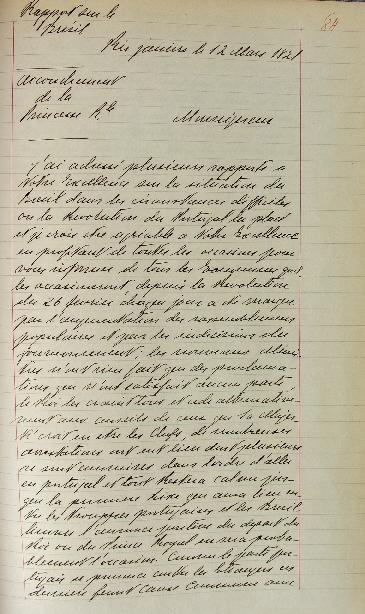 Rapport sur le
Brésil
84
Rio janeiro le 12 Mars 1821
accouchement
de la
Princesse Rle
Monseigneur
J'ai adressé plusieurs rapports a
Votre Excellence sur la situation du
Bresil dans les circonstances difficiles
ou la révolution du Portugal la place
et je crois être agréable a Votre Excellence
en profitant de toutes les occasions pour
vous informer de tous les
les depuis la Révolution
du 26 fevrier chaque jour a été marqué
par l'augmentation des rassemblements
populaires et par les indécisions du
gouvernement; les nouveaux
n'ont rien fait que des proclama-
tions qui n'ont satisfait aucun parti,
le Roi les craint tous et cède alternative-
ment aux conseils de ceux que Sa Majes-
té croit en être les chefs, de nombreuses
arrestations ont eu lieu dont plusieurs
se sont dans l'ordre d'aller
en portugal et tout restera calme jus-
que la premiere qui aura lieu en-
tre les trouppes portugaises et les
l'annonce du depart du
Roi ou du Prince Royal en sera proba-
blement l'occasion. Comme le parti por-
tugais se prononce contre les étrangers ces
derniers feront cause commune avec